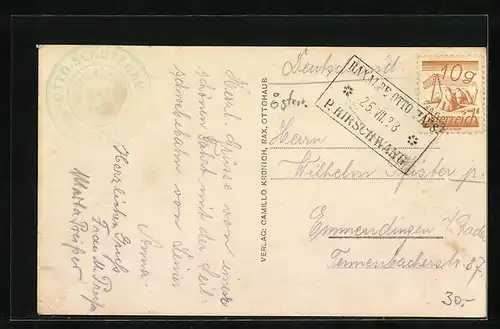 OTTO-SCHUTZHAUS
Herzl. Grüsse von einer
schönen Fahrt mit der Seil-
schwebebahn von Deiner
Anna.
Herzlichen Gruß
Frau M.
Marta
VERLAG: CAMILLO KRONICH, RAX, OTTOHAUS
Deutschland
Österr.
RAXALPE OTTO
25.VII.28
P. HIRSCHWANG
10g
Österreich
Herrn
Wilhelm Pfister jr.
Emmendingen i/Baden
Tennenbacherstr. 87.
30.-